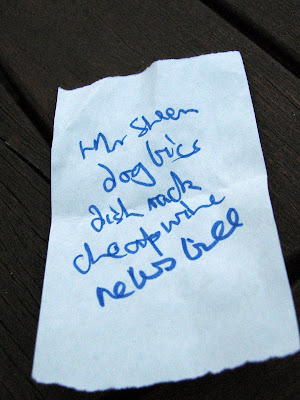 Mr Sheen
dog bics
dish rack
cheap wine
news bill